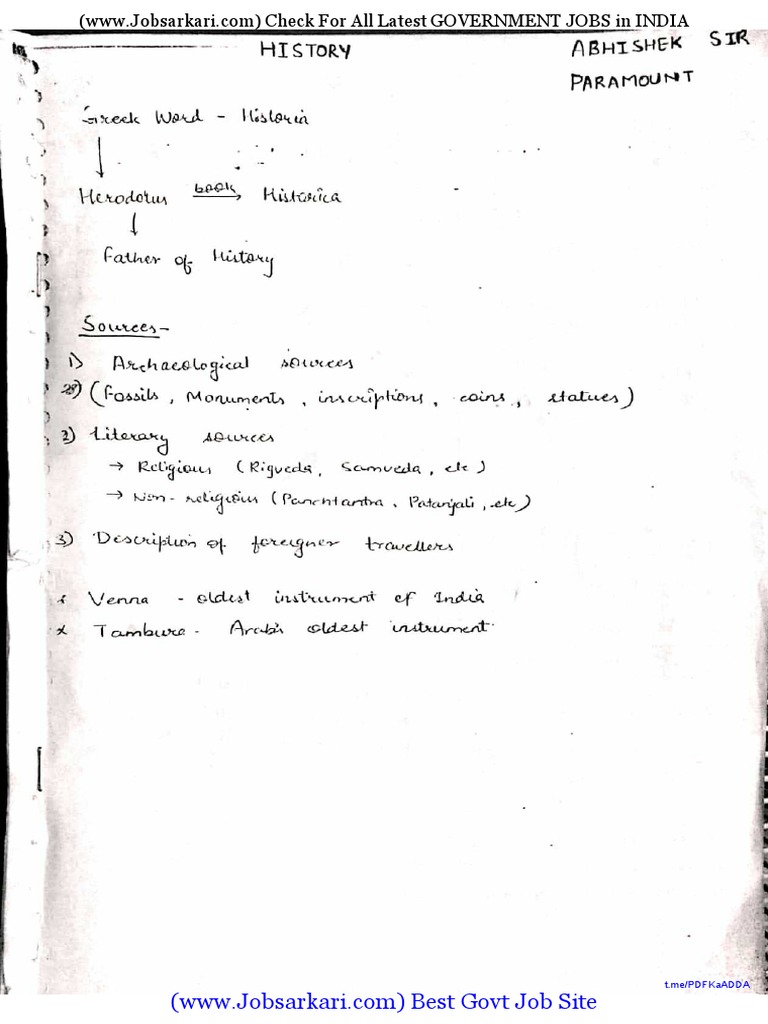 (www.Jobsarkari.com) Check For All Latest GOVERNMENT JOBS in INDIA
HISTORY
ABHISHEK SIR
PARAMOUNT
Greek Word - Historia
Herodotus book Historica
Father of History
Sources-
1) Archaeological sources
(Fossils, Monuments, inscriptions, coins, statues)
2) Literary sources
→ Religious (Rigveda, Samveda, etc)
→ Non-religious (Panchtantra, Patanjali, etc)
3) Description of foreigner travellers
x Venna - oldest instrument of India
x Tambure - Arab's oldest instrument.
t.me/PDFKaADDA
(www.Jobsarkari.com) Best Govt Job Site